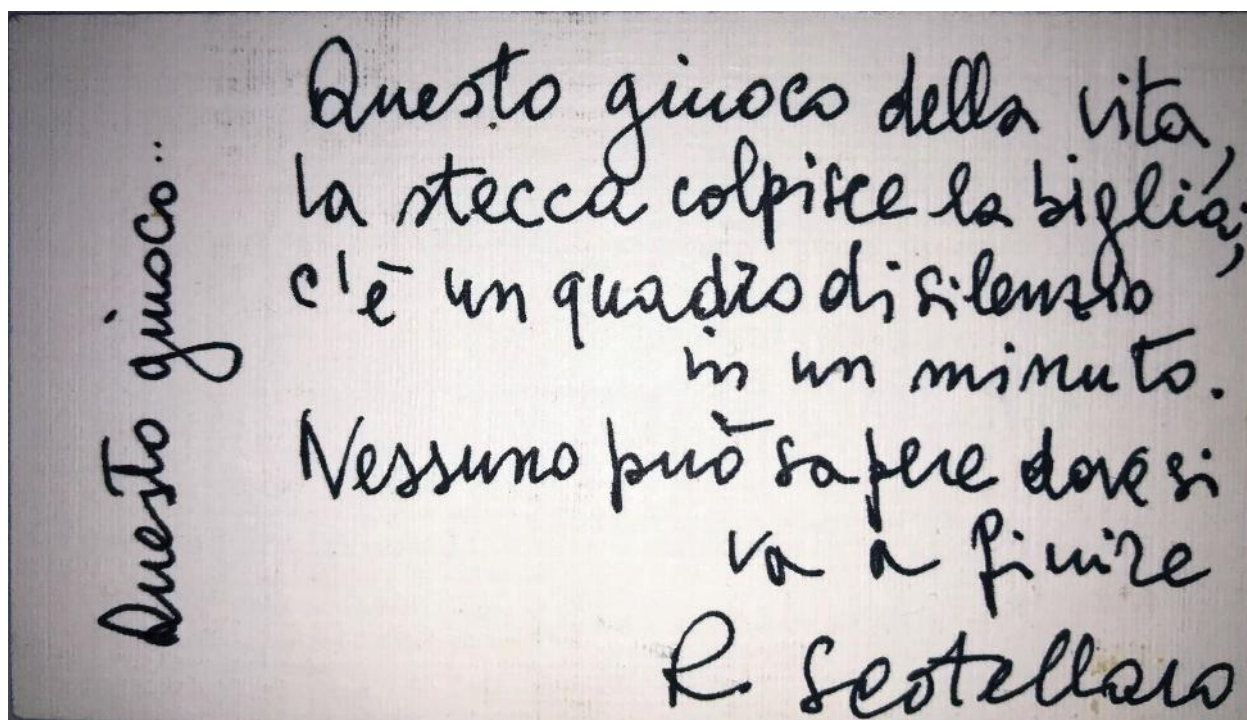 Questo giuoco..
Questo giuoco della vita,
la stecca colpisce la biglia;
c'è un quadro di silenzio
in un minuto.
Nessuno può sapere dove si
va a finire
R. Scotellaro